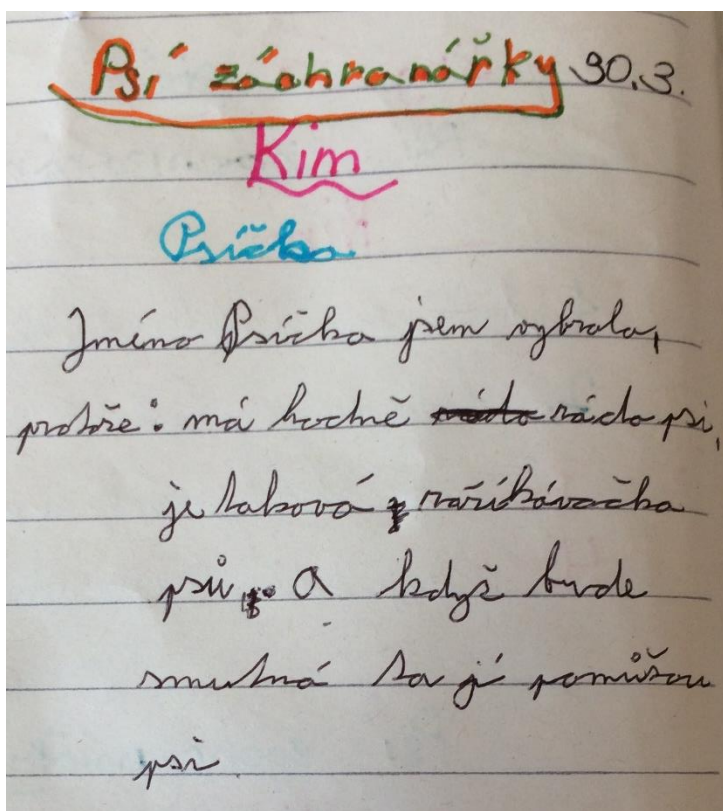 Psí záchranářky 30.3.
Kim
Psíčka
Jméno Psíčka jsem vybrala,
protože: má hodně ráda psi,
je taková zaříkávačka
psů. A když bude
smutná ta jí pomůžou
psi